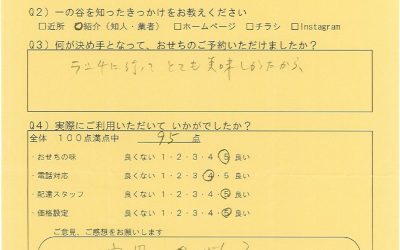 Q2) 一の谷を知ったきっかけをお教えください
□近所 □紹介(知人・業者) □ホームページ □チラシ □Instagram
Q3) 何が決め手となって、おせちのご予約いただけましたか?
ランチに行って とても美味しかたから
Q4) 実際にご利用いただいて いかがでしたか?
全体 100点満点中 95 点
・おせちの味 良くない 1・2・3・4・5 良い
・電話対応 良くない 1・2・3・4・5 良い
・配達スタッフ 良くない 1・2・3・4・5 良い
・価格設定 良くない 1・2・3・4・5 良い
ご意見、ご感想をお願いします